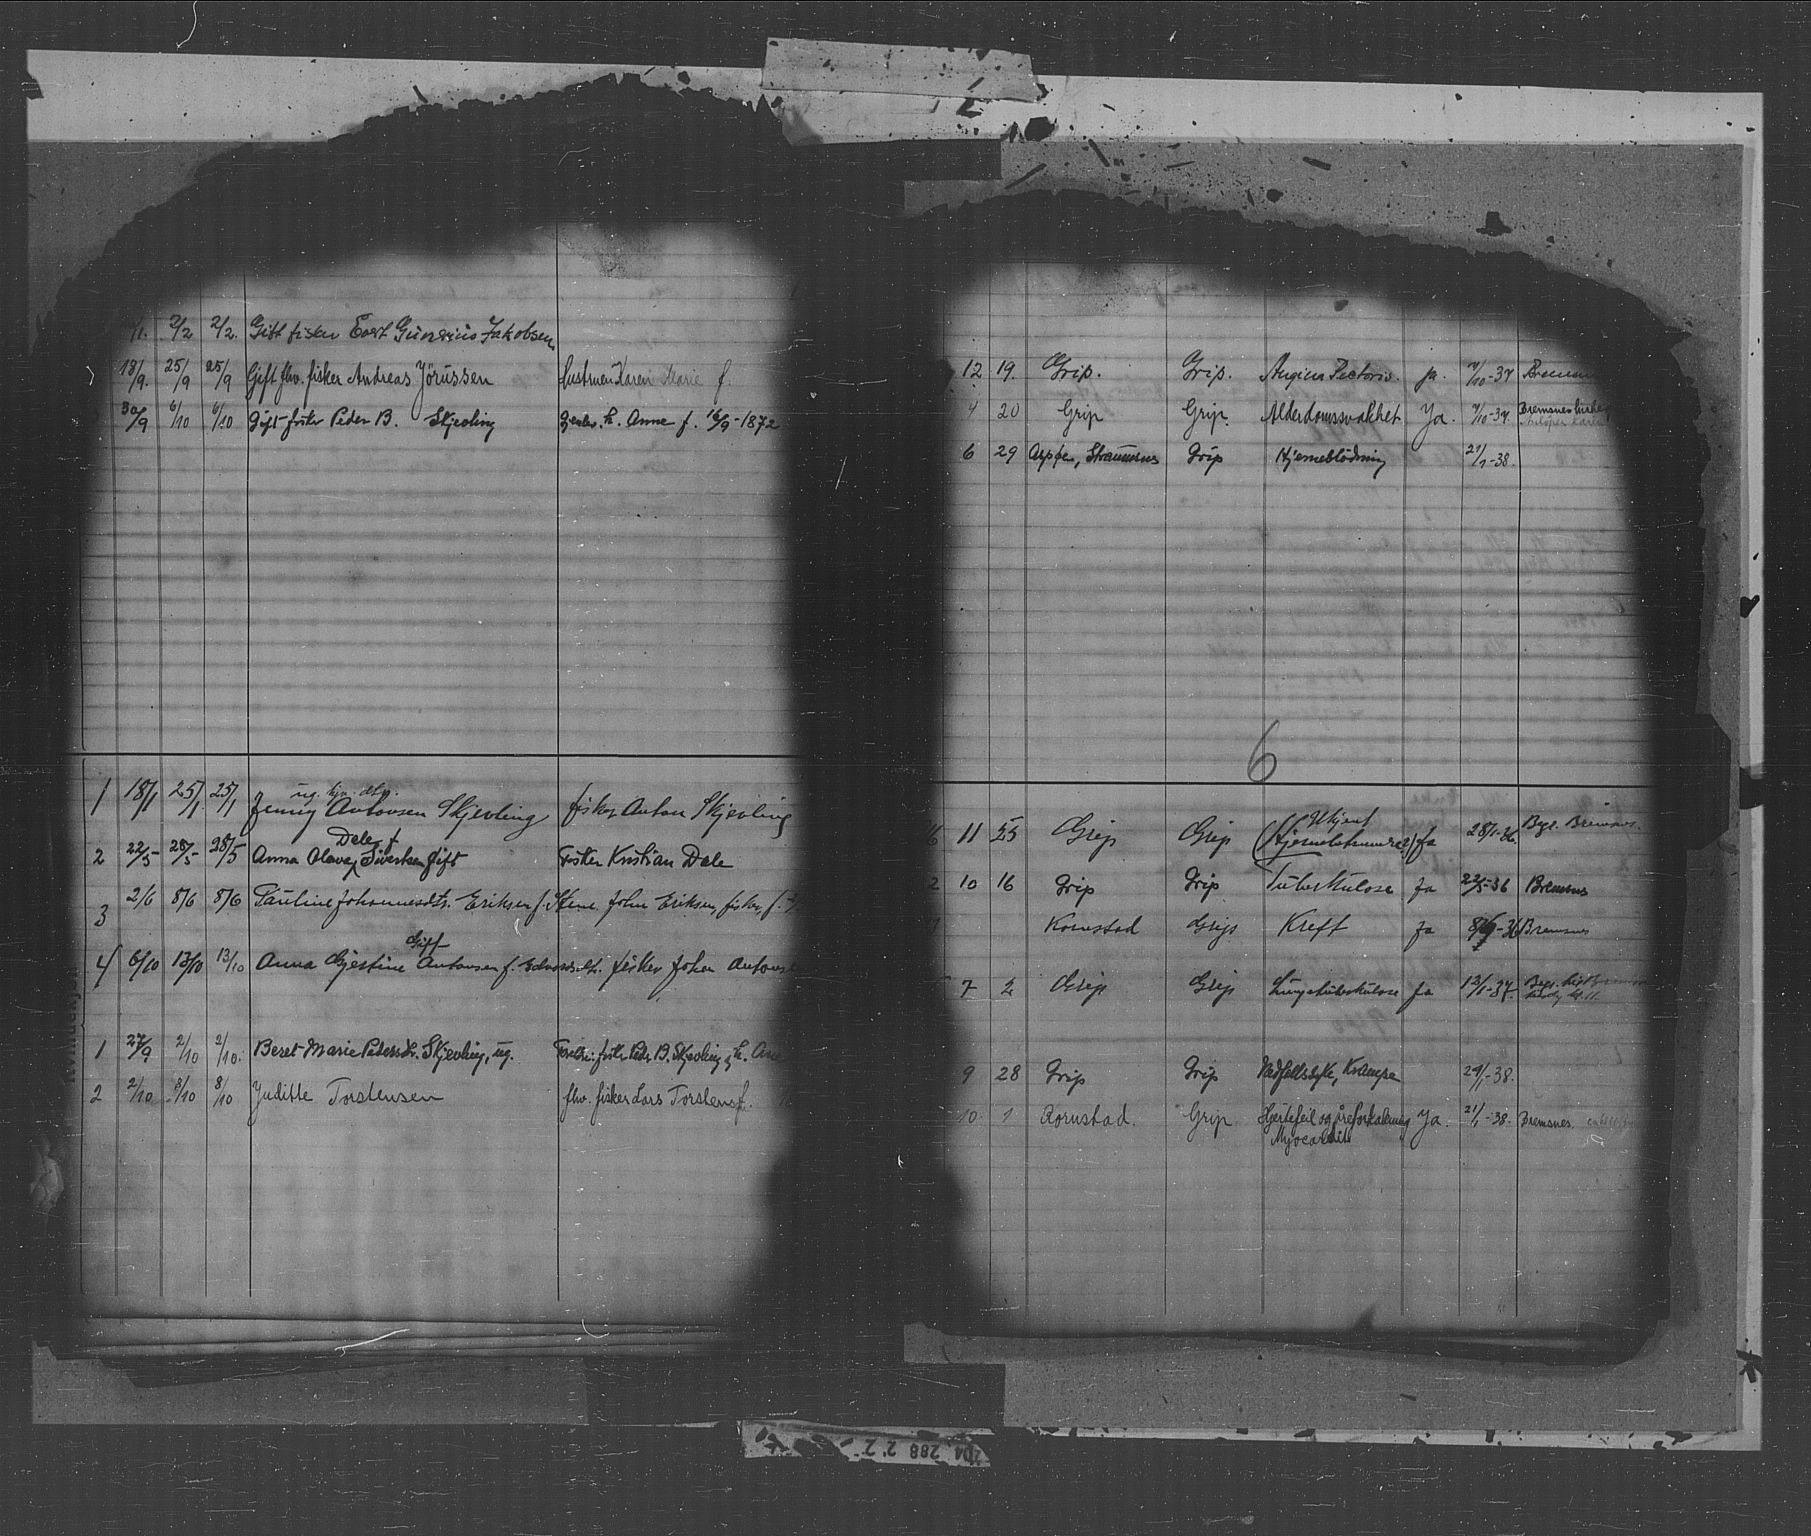 /1. 2/2 2/2. Gift fisker Evert Gunerius Jakobsen
18/9. 25/9 25/9 Gift fhv. fisker Andreas Jörussen hustruen Karen Marie f
30/9 6/10 6/10 Gift fisker Peder B. Skjevling h. Anne f. 16/9-1872
1 18/1 25/1. 25/1 Jenny Antonsen Skjevling fisker Anton Skjevling
ug.
Dale f
2 22/5 28/5 28/5 Anna Olava Sivertsen Gift Fisker Kristian Dale
3 2/6 8/6 8/6 Pauline Johannesdtr. Eriksen f. John Eriksen, fisker, f.
Gift
4 6/10 13/10 13/10 Anna Gjertine Antonsen f. fisker Johan
1 27/9 2/10 2/10. Beret Marie Pedersdtr. Skjevling, ug. fisker Peder B. Skjevling, h.
2 2/10 8/10 8/10 Juditte Torstensen fhv. fisker Lars Torstens f.
12 19. Grip. Grip. Angina Pectoris. ja. 7/10-37
4 20 Grip Grip. Alderdomssvakhet Ja. 7/10-37 Bremsnes
6 29 Aspøe, Straumsnes Grip Hjerneblödning 21/1-38.
6
Ukjent
11 25 Grip Grip (Hjernebetennelse?) Ja 28/1-36. Begr. Bremsnes
2 10 16 Grip Grip Tuberkulose Ja 22/5-36 Bremsnes
Kornstad Grip Kreft Ja -36 Bremsnes
7 2 Grip Grip Lungetuberkulose Ja 12/1-37. Begr.
9 28 Grip Grip Nedfallssyke, Krampe 29/1-38.
10 1 Kornstad. Grip Hjertefeil og åreforkalkning Ja. 21/1-38. Bremsnes.
Myocardit
204 288 2 2